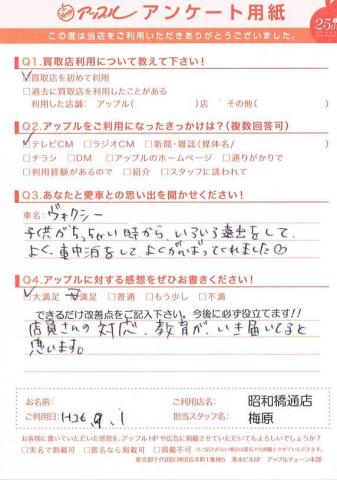 アップル アンケート用紙
25th
この度は当店をご利用いただきありがとうございました。
Q1.買取店利用について教えて下さい!
☑買取店を初めて利用
□過去に買取店を利用したことがある
利用した店舗: アップル( )店 ・その他( )
Q2.アップルをご利用になったきっかけは?(複数回答可)
☑テレビCM □ラジオCM □新聞・雑誌(媒体名/ )
□チラシ □DM □アップルのホームページ □通りがかりで
□利用経験があるので □紹介 □スタッフに誘われて
Q3.あなたと愛車との思い出を聞かせください!
車名: ヴォクシー
子供がちっちゃい時から、いろいろ遠出をして、
よく、車中泊をして、よくがんばってくれました♡
Q4.アップルに対する感想をぜひお書きください!
☑大満足 ☑満足 □普通 □もう少し □不満
できるだけ改善点をご記入下さい。今後に必ず役立てます!!
店員さんの対応、教育が、いき届いてると
思います。
お名前: ご利用店名: 昭和橋通店
ご利用日: H26.9.1 担当スタッフ名: 梅原
お客様に書いていただいた感想を、アップルHPや広告に掲載させていただいてもよろしいでしょうか?
□実名で掲載可 □匿名なら掲載可 □掲載して欲しくない
東京都千代田区神田店本町1番地5 清水ビル6F アップルチェーン本部